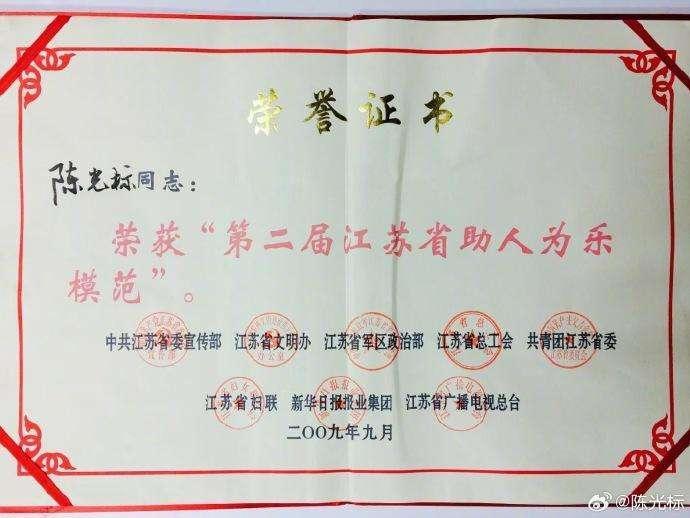 荣誉证书
陈光标同志：
荣获“第二届江苏省助人为乐
模范”。
中共江苏省委宣传部 江苏省文明办 江苏省军区政治部 江苏省总工会 共青团江苏省委
江苏省妇联 新华日报报业集团 江苏省广播电视总台
二〇〇九年九月
@陈光标